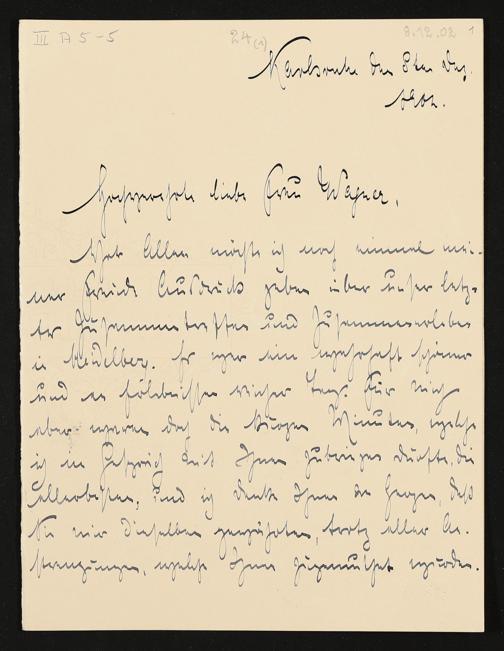 III A 5-5 24(1) 8.12.02 1
Karlsruhe den 8ten Dez.
1902.
Hochverehrte liebe Frau Wagner,
Vor Allem möchte ich noch einmal mei-
ner Freude Ausdruck geben über unser letz-
tes Zusammentreffen und Zusammenerleben
in Heidelberg. Es war ein wahrhaft schöner
und an Erlebnissen reicher Tag. Für mich
aber waren doch die kurzen Minuten, welche
ich im Gespräch mit Ihnen zubringen durfte, die
allerbesten; und ich danke Ihnen von Herzen, daß
Sie mir dieselben gewährten, trotz aller An-
strengungen, welche Ihnen zugemuthet wurden.